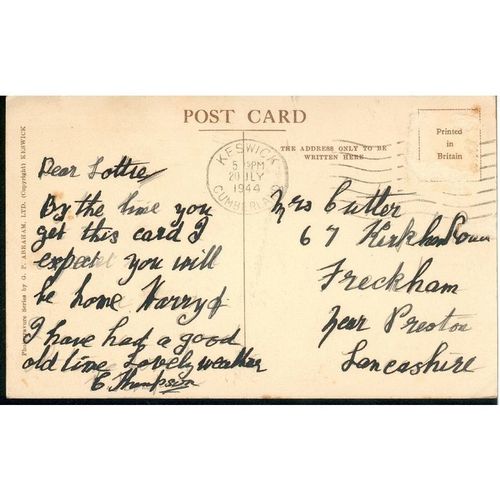 POST CARD
THE ADDRESS ONLY TO BE
WRITTEN HERE
Printed
in
Britain
KESWICK
5 PM
20 JLY
1944
CUMBERLAND
Photogravure Series by G. P. ABRAHAM, LTD. (Copyright) KESWICK
Dear Lottie
By the time you
get this card I
expect you will
be home Harry &
I have had a good
old time Lovely weather
E Thompson
Mrs Cutler
67 Kirkham
Freckham
Near Preston
Lancashire